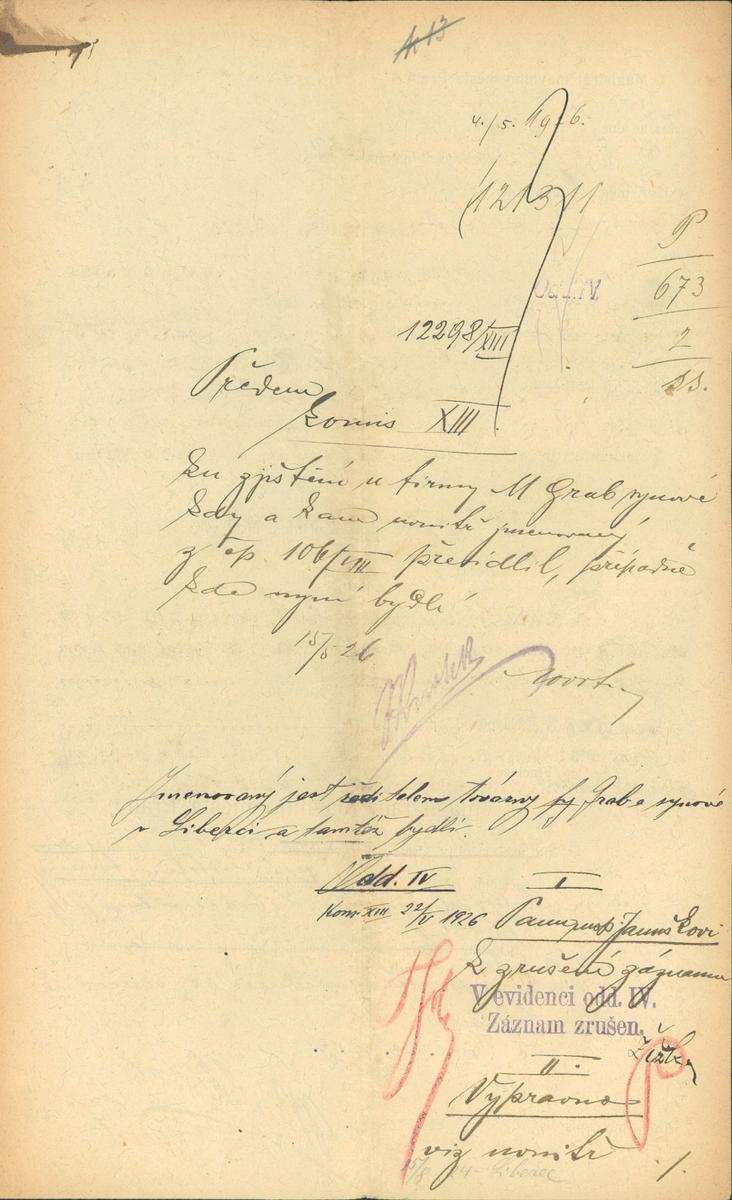 4./5. 1926.
12131
P
673
2
ss.
Odd. IV.
12298/XIII
Předem
Komis XIII
ku zjištění u firmy M Grab synové
kdy a kam uvnitř jmenovaný
z čp. 106/VIII přesídlil, případně
kde nyní bydlí
15/5 26
Jmenovaný jest ředitelem továrny fy Grab a synové
v Liberci a tamtéž bydlí.
Odd. IV
Kom. XIII 22/V 1926
I
Panu Januškovi
k zrušení záznamu
V evidenci odd. IV.
Záznam zrušen.
II.
Výpravna
viz uvnitř
Liberec